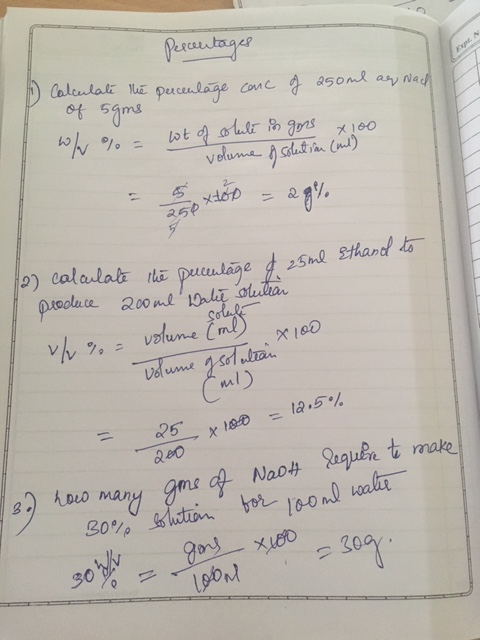 Percentages
1) Calculate the percentage conc of 250ml aq NaCl
of 5gms
w/v % = wt of solute in gms / volume of solution (ml) × 100
= 5/250 × 100 = 2 g%
2) Calculate the percentage of 25ml Ethanol to
produce 200ml Water solution
v/v % = volume solute (ml) / volume of solution (ml) × 100
= 25/200 × 100 = 12.5%
3.) how many gms of NaOH require to make
30% solution for 100ml water
30 w/v % = gms / 100ml × 100 = 30g.
Expt. N